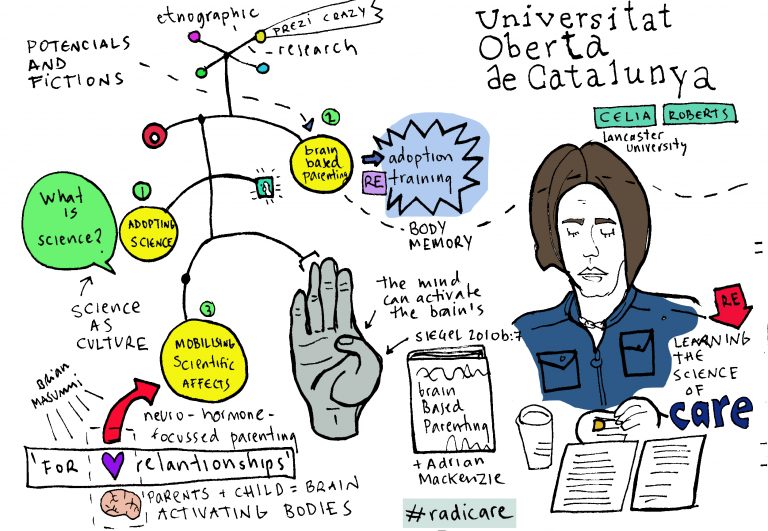 etnographic
PREZI CRAZY
research
POTENCIALS
AND
FICTIONS
Universitat
Oberta
de Catalunya
CELIA ROBERTS
Lancaster
University
2
brain
based
parenting
adoption
RE training
BODY
MEMORY
What
is
science?
1
ADOPTING
SCIENCE
SCIENCE
AS
CULTURE
3
MOBILISING
Scientific
AFFECTS
the mind
can activate
the brain's
SIEGEL 2010b:7
brain
Based
Parenting
+ Adrian
Mackenzie
RE
LEARNING
THE
SCIENCE
OF
care
Brian
Masummi
neuro-hormone-
focussed parenting
'FOR relantionships'
PARENTS + CHILD = BRAIN
ACTIVATING BODIES
#radicare